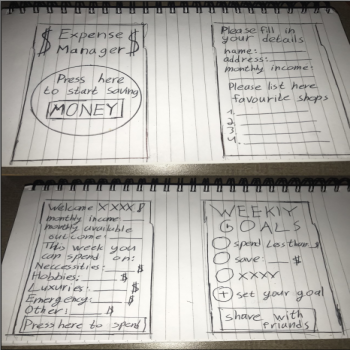 $ Expense $
Manager
Press here
to start saving
MONEY
Please fill in
your details
name:
address:
monthly income:
Please list here
favourite shops
1.
2.
3.
4.
Welcome XXXX $
monthly income
monthly available
outcome:
This week you
can spend on:
Neccessities: $
Hobbies: $
Luxuries: $
Emergency: $
Other: $
Press here to spend
WEEKLY
GOALS
spend less than $
save: $
XXXY
+ set your goal
share with
friends